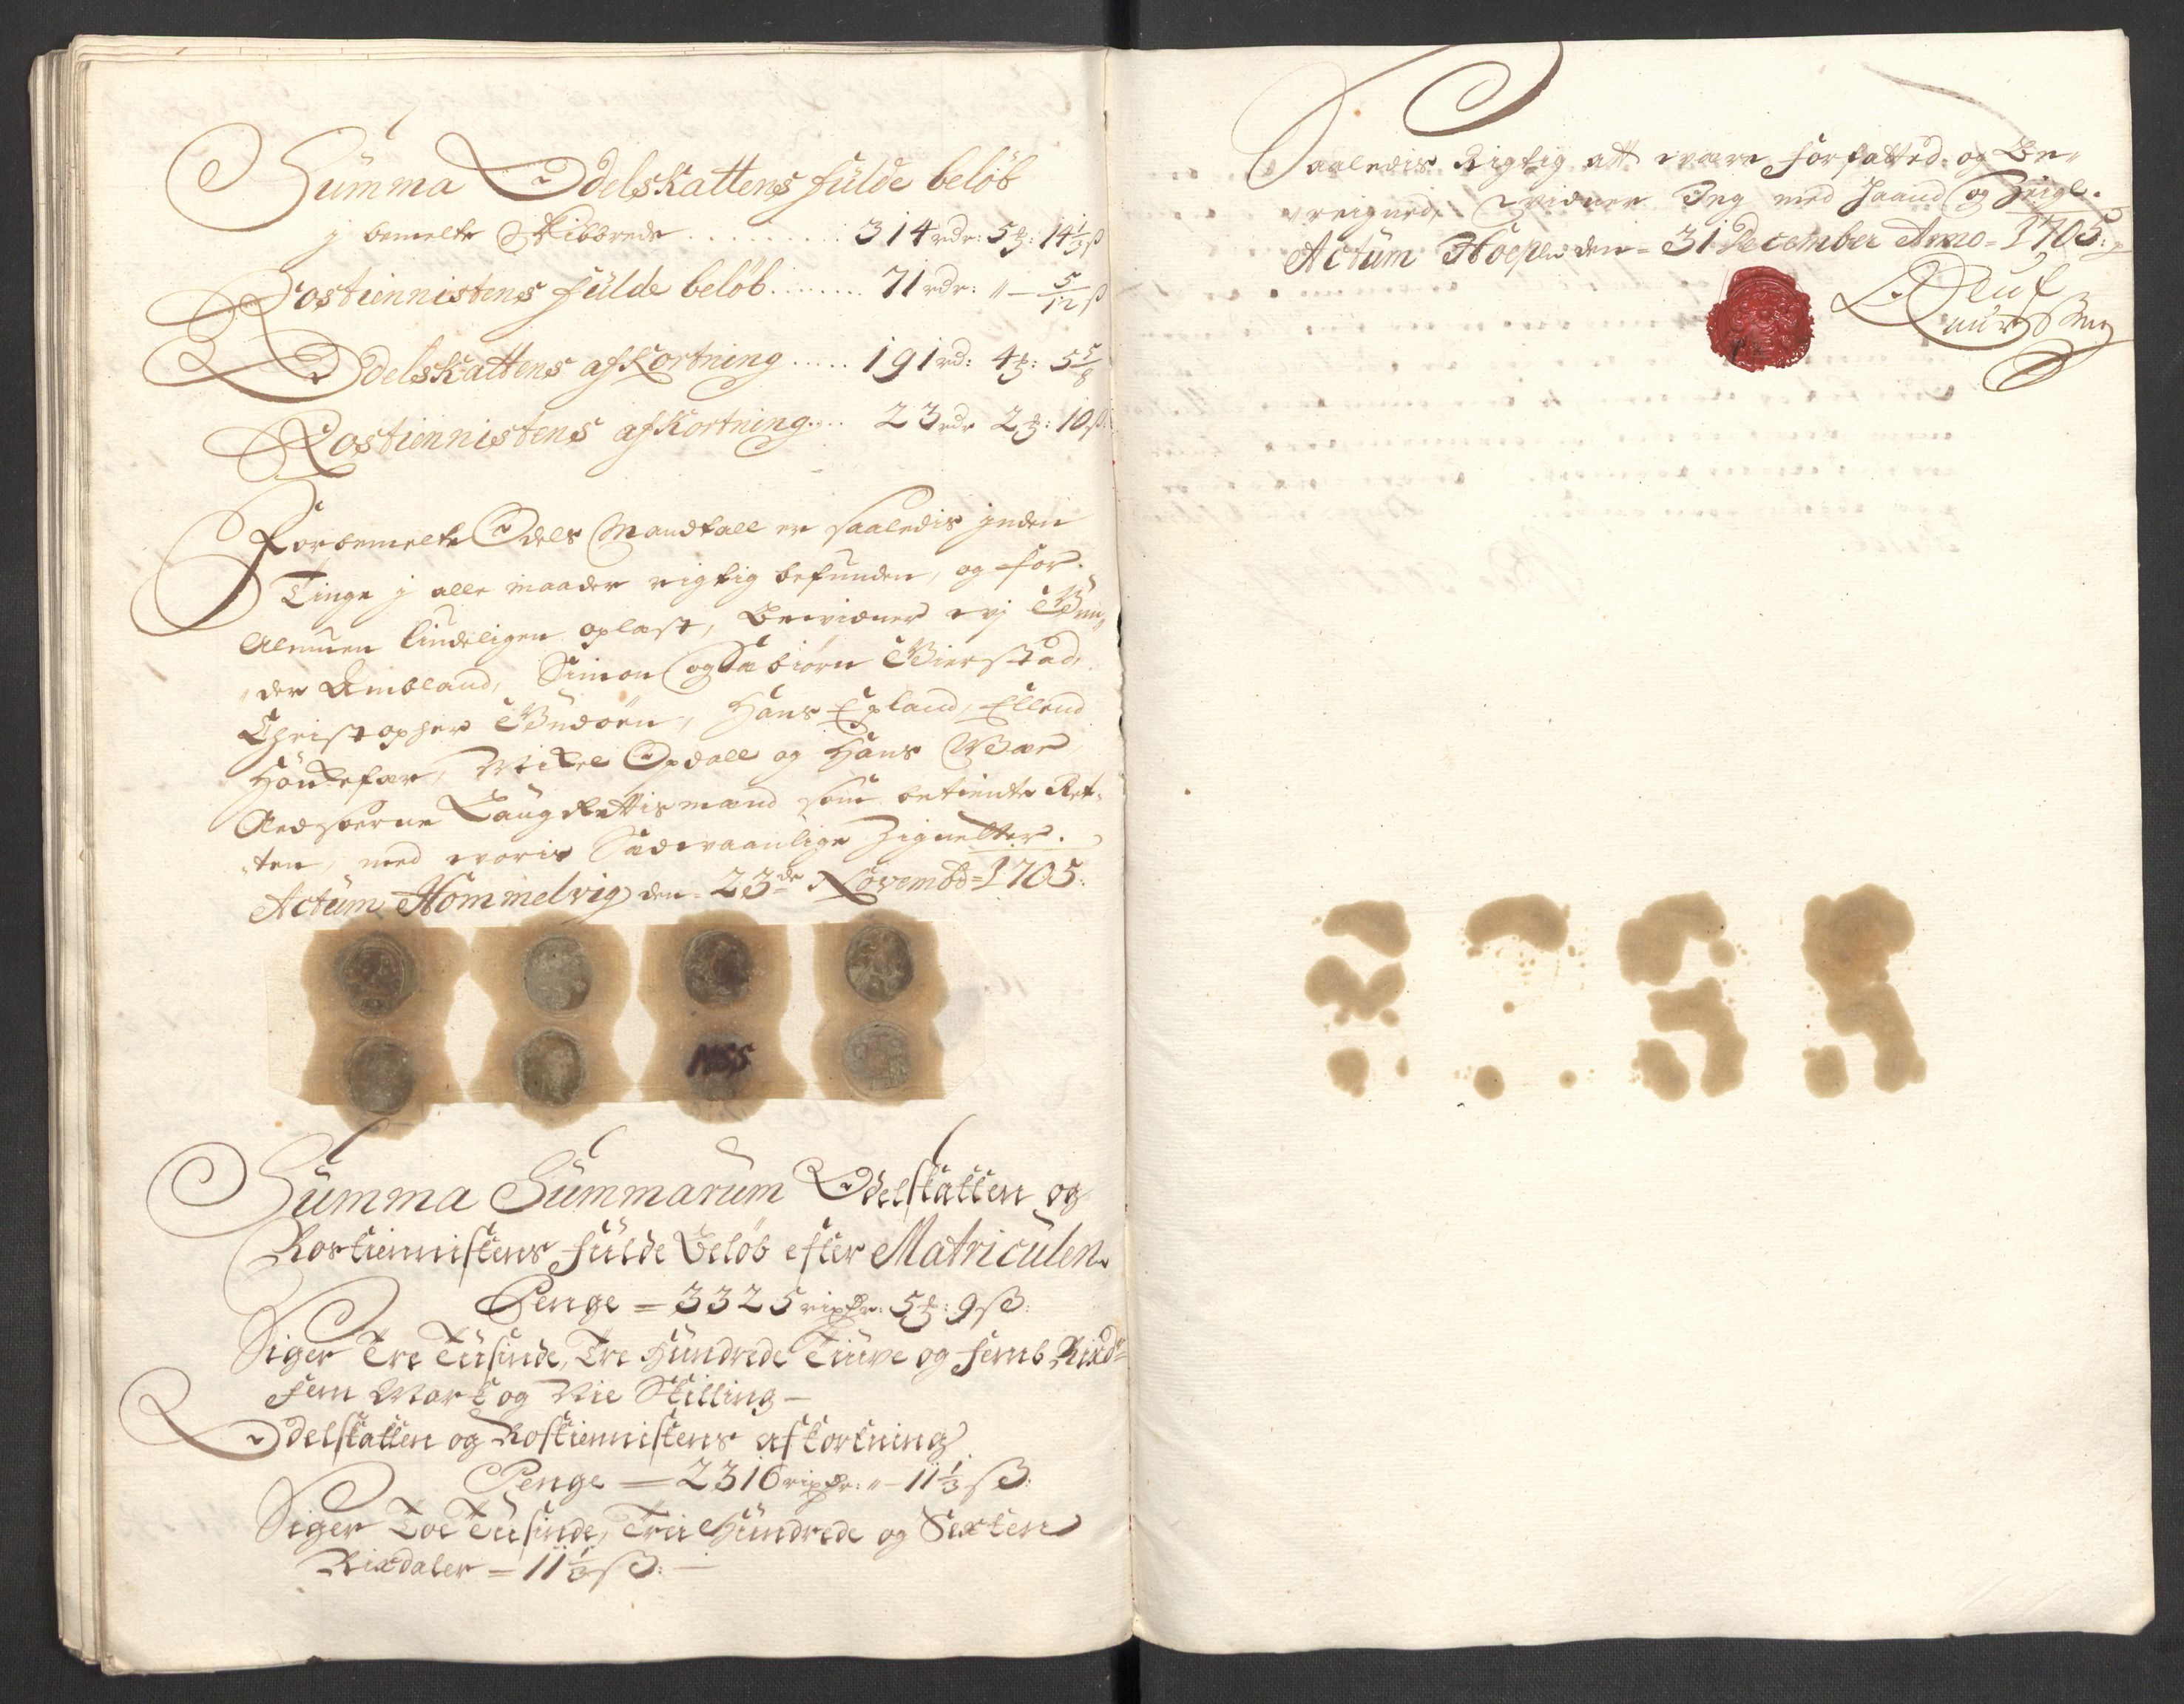 Summa Odelskattens fulde beløb
j bemelte Skibbrede . . . . . . . . . 314 rdr: 5 ℔: 14 1/3 ß
Rostiennistens fulde beløb . . . . . . . 71 rdr: " — 5/12 ß
Odelskattens afkortning . . . . . 191 rd: 4 ℔: 5 5/8
Rostiennistens afkortning . . . . 23 rdr 2 ℔: 10 ß:
Forbemelte Odels Mandtall er saaledis inden
Tinge j alle maader rigtig befunden, og for
Almuen liudeligen oplæst, Bevidner vj
der Ambland, Simon og Biersted,
Christopher Hans Epland, Ellend
Mikel Opdall og Hans
Laug Rettismænd som betiente Ret-
ten, med voris Sædvaanlige Zignetter.
Actum Hommelvig den 23de Novembr = 1705.
MSS
Summa Summarum Odelskatten og
Rostiennistens fulde Beløb efter Matriculen
Penge = 3325 rixdr: 5 ℔: 9 ß:
Siger Tre Tusinde, Tre Hundrede Tiuve og femb Rixdr
fem Mark og Nie Skilling —
Odelskatten og Rostiennistens afkortning
Penge = 2316 rixdr: " — 11 1/3 ß:
Siger Toe Tusinde, Trei Hundrede og Sexten
Rixdaler = 11 1/3 ß: —
Saaledis Rigtig att være forfatted og Be-
reigned, Tvidner Jeg med Haand og Zeigl.
Actum den = 31 December Anno = 1705:
Oluf